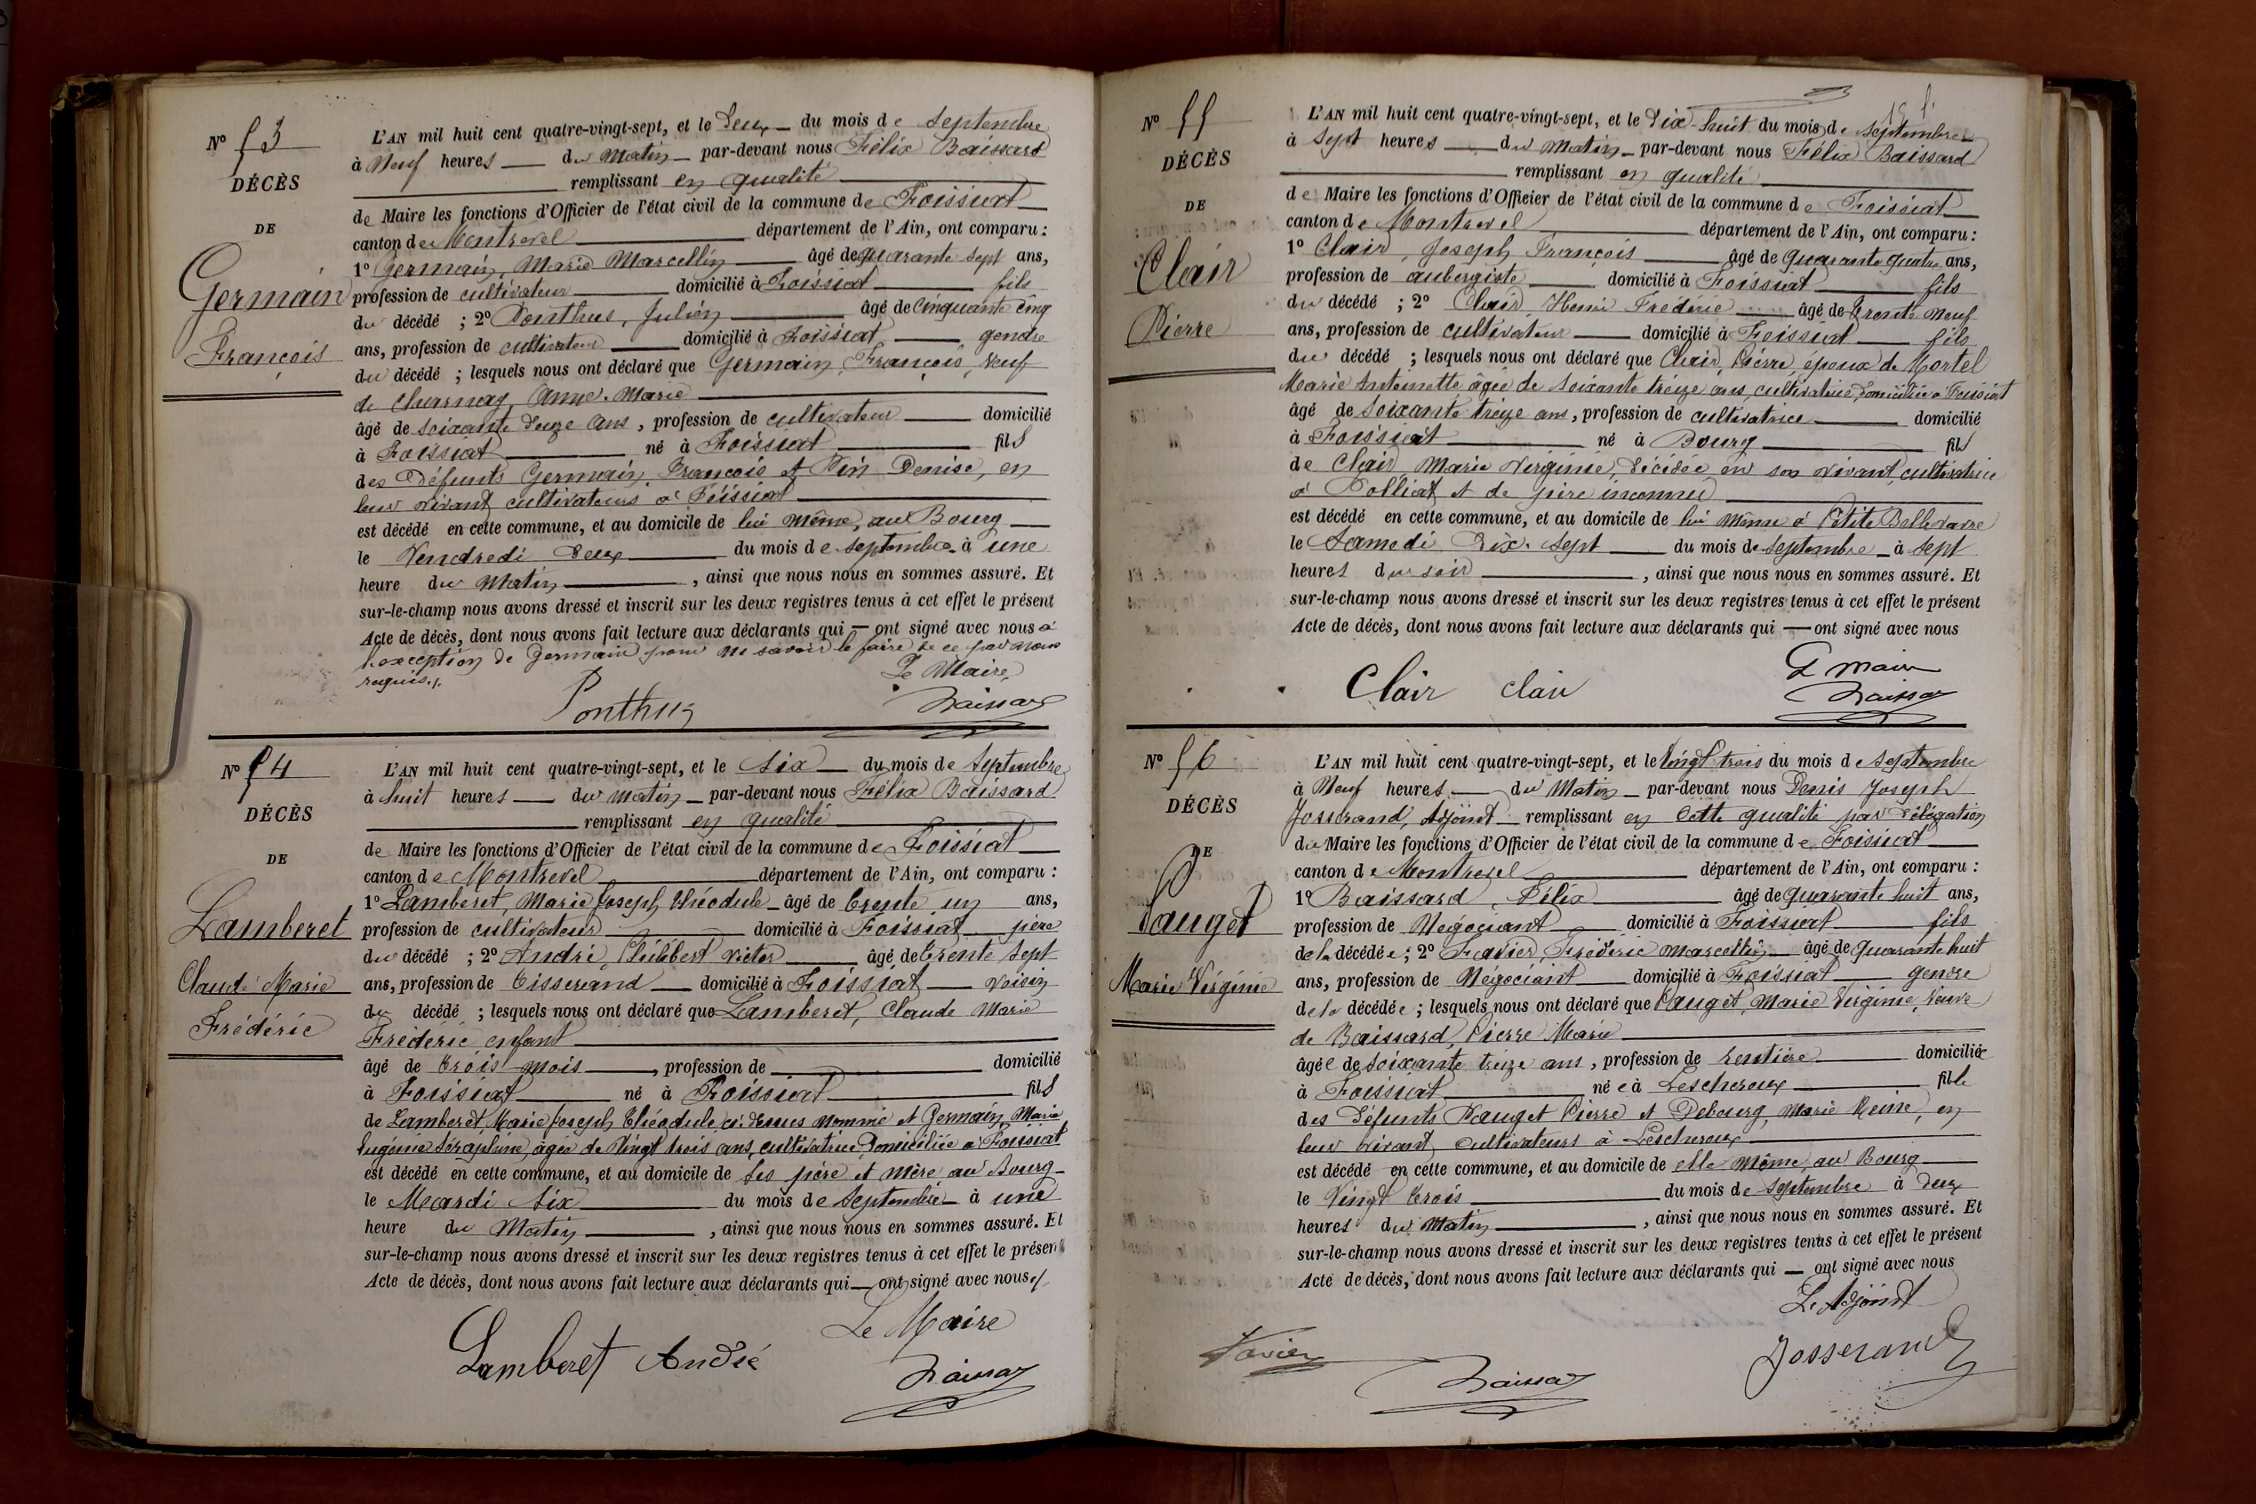 Nº 53
DÉCÈS
DE
Germain
François
L'AN mil huit cent quatre-vingt-sept, et le Deux du mois de Septembre
à Neuf heures du Matin par-devant nous Félix Baissard
remplissant en qualité
de Maire les fonctions d'Officier de l'état civil de la commune de Foissiat
canton de Montrevel département de l'Ain, ont comparu :
1º Germain, Marie Marcellin âgé de quarante sept ans,
profession de cultivateur domicilié à Foissiat fils
du décédé ; 2º Ponthus, Julien âgé de Cinquante cinq
ans, profession de cultivateur domicilié à Foissiat gendre
du décédé ; lesquels nous ont déclaré que Germain, François, veuf
de Charnay, Anne-Marie
âgé de soixante douze ans, profession de cultivateur domicilié
à Foissiat né à Foissiat fils
des Défunts Germain, François et Pin Denise, en
leur vivant cultivateurs à Foissiat
est décédé en cette commune, et au domicile de lui même, au Bourg
le Vendredi Deux du mois de septembre à une
heure du Matin, ainsi que nous nous en sommes assuré. Et
sur-le-champ nous avons dressé et inscrit sur les deux registres tenus à cet effet le présent
Acte de décès, dont nous avons fait lecture aux déclarants qui — ont signé avec nous à
l'exception de Germain pour ne savoir le faire de ce par nous
requis./.
Le Maire,
Ponthus
Baissard
Nº 54
DÉCÈS
DE
Lamberet
Claude Marie
Frédéric
L'AN mil huit cent quatre-vingt-sept, et le Six du mois de Septembre
à huit heures du Matin par-devant nous Félix Baissard
remplissant en qualité
de Maire les fonctions d'Officier de l'état civil de la commune de Foissiat
canton de Montrevel département de l'Ain, ont comparu :
1º Lamberet, Marie Joseph Théodule âgé de trente un ans,
profession de cultivateur domicilié à Foissiat père
du décédé ; 2º André, Philibert Victor âgé de trente sept
ans, profession de Tisserand domicilié à Foissiat Voisin
du décédé ; lesquels nous ont déclaré que Lamberet, Claude Marie
Frédéric enfant
âgé de trois mois, profession de domicilié
à Foissiat né à Foissiat fils
de Lamberet, Marie Joseph Théodule ci-dessus nommé et Germain, Marie
Eugénie Séraphine, âgée de Vingt trois ans, cultivatrice, Domiciliée à Foissiat
est décédé en cette commune, et au domicile de Ses père et mère au Bourg
le Mardi Six du mois de Septembre à une
heure du Matin, ainsi que nous nous en sommes assuré. Et
sur-le-champ nous avons dressé et inscrit sur les deux registres tenus à cet effet le présent
Acte de décès, dont nous avons fait lecture aux déclarants qui — ont signé avec nous./.
Le Maire
Lamberet André
Baissard
Nº 55
DÉCÈS
DE
Clair
Pierre
L'AN mil huit cent quatre-vingt-sept, et le Dix-huit du mois de Septembre
à Sept heures du Matin par-devant nous Félix Baissard
remplissant en qualité
de Maire les fonctions d'Officier de l'état civil de la commune de Foissiat
canton de Montrevel département de l'Ain, ont comparu :
1º Clair, Joseph François âgé de Quarante quatre ans,
profession de aubergiste domicilié à Foissiat fils
du décédé ; 2º Clair, Henri Frédéric âgé de trente neuf
ans, profession de cultivateur domicilié à Foissiat fils
du décédé ; lesquels nous ont déclaré que Clair, Pierre, époux de Mortel
Marie Antoinette âgée de soixante treize ans, cultivatrice, Domiciliée à Foissiat
âgé de Soixante treize ans, profession de cultivatrice domicilié
à Foissiat né à Bourg fils
de Clair, Marie Virginie, Décédée en son vivant, cultivatrice
à Polliat et de père inconnu
est décédé en cette commune, et au domicile de lui même à Petite Bellevavre
le Samedi Dix-sept du mois de septembre à sept
heures du soir, ainsi que nous nous en sommes assuré. Et
sur-le-champ nous avons dressé et inscrit sur les deux registres tenus à cet effet le présent
Acte de décès, dont nous avons fait lecture aux déclarants qui — ont signé avec nous
Le maire
Clair clair
Baissard
Nº 56
DÉCÈS
DE
Pauget
Marie Virginie
L'AN mil huit cent quatre-vingt-sept, et le Vingt trois du mois de Septembre
à Neuf heures du Matin par-devant nous Denis Joseph
Josserand, Adjoint remplissant en Cette qualité par Délégation
du Maire les fonctions d'Officier de l'état civil de la commune de Foissiat
canton de Montrevel département de l'Ain, ont comparu :
1º Baissard, Félix âgé de Quarante huit ans,
profession de Négociant domicilié à Foissiat fils
de la décédée ; 2º Favier, Frédéric Marcellin âgé de Quarante huit
ans, profession de Négociant domicilié à Foissiat gendre
de la décédée ; lesquels nous ont déclaré que Pauget, Marie Virginie, Veuve
de Baissard, Pierre Marie
âgée de soixante treize ans, profession de rentière domiciliée
à Foissiat née à Lescheroux fille
des Défunts Pauget Pierre et Debourg, Marie Reine, en
leur vivant cultivateurs à Lescheroux
est décédé en cette commune, et au domicile de elle même, au Bourg
le Vingt trois du mois de septembre à deux
heures du Matin, ainsi que nous nous en sommes assuré. Et
sur-le-champ nous avons dressé et inscrit sur les deux registres tenus à cet effet le présent
Acte de décès, dont nous avons fait lecture aux déclarants qui — ont signé avec nous
Le Adjoint
Favier
Baissard
Josserand